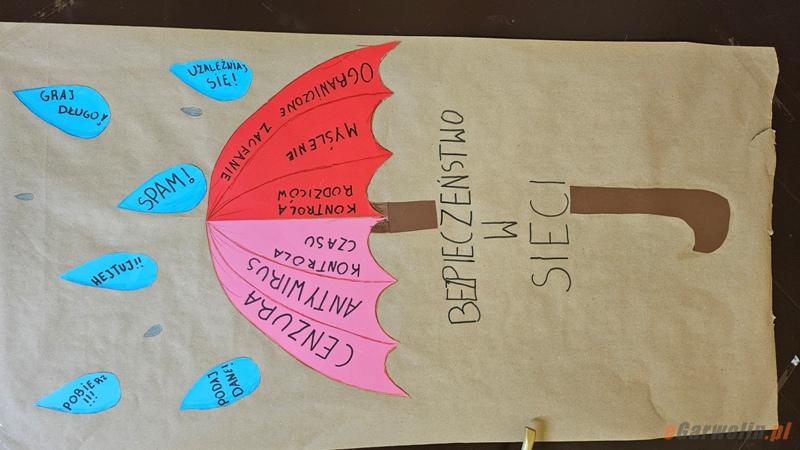 POBIERZ
!!!
PODAJ
DANE!
HEJTUJ!!
SPAM!
GRAJ
DŁUGO!
UZALEŻNIAJ
SIĘ!
CENZURA
ANTYWIRUS
KONTROLA
CZASU
KONTROLA
RODZICÓW
MYŚLENIE
OGRANICZONE ZAUFANIE
BEZPIECZEŃSTWO
W
SIECI
eGarwolin.pl